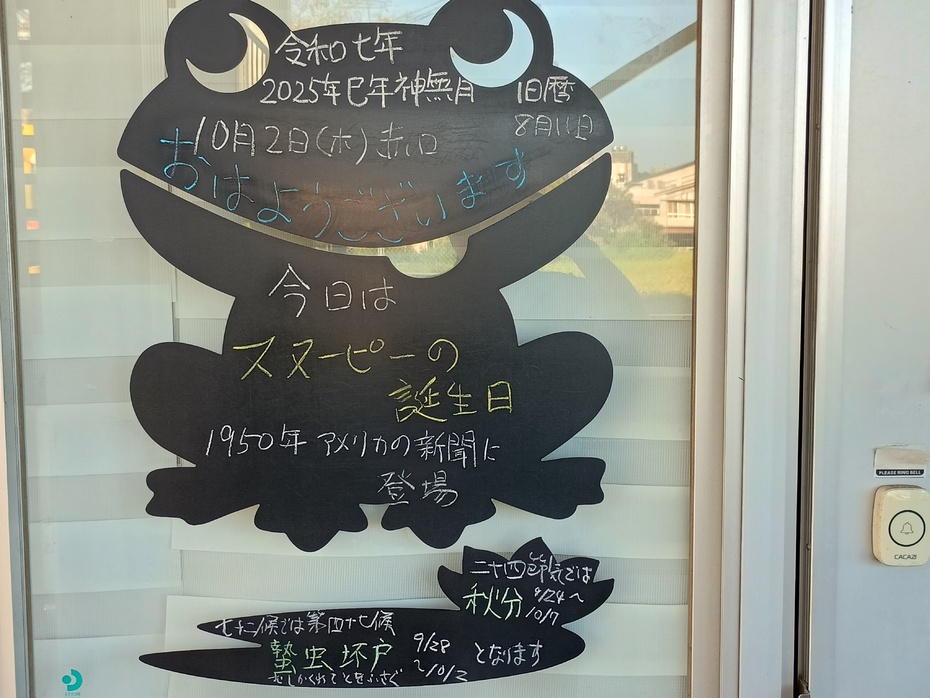 令和七年
2025年巳年神無月
旧暦
8月11日
10月2日(木)赤口
おはようございます
今日は
スヌーピーの
誕生日
1950年アメリカの新聞に
登場
二十四節気では
秋分 9/24～
10/7
七十二候では第四十七候
蟄虫坏戸 9/28
～10/2
となります
むしかくれてとをふさぐ
PLEASE RING BELL
CACAZI